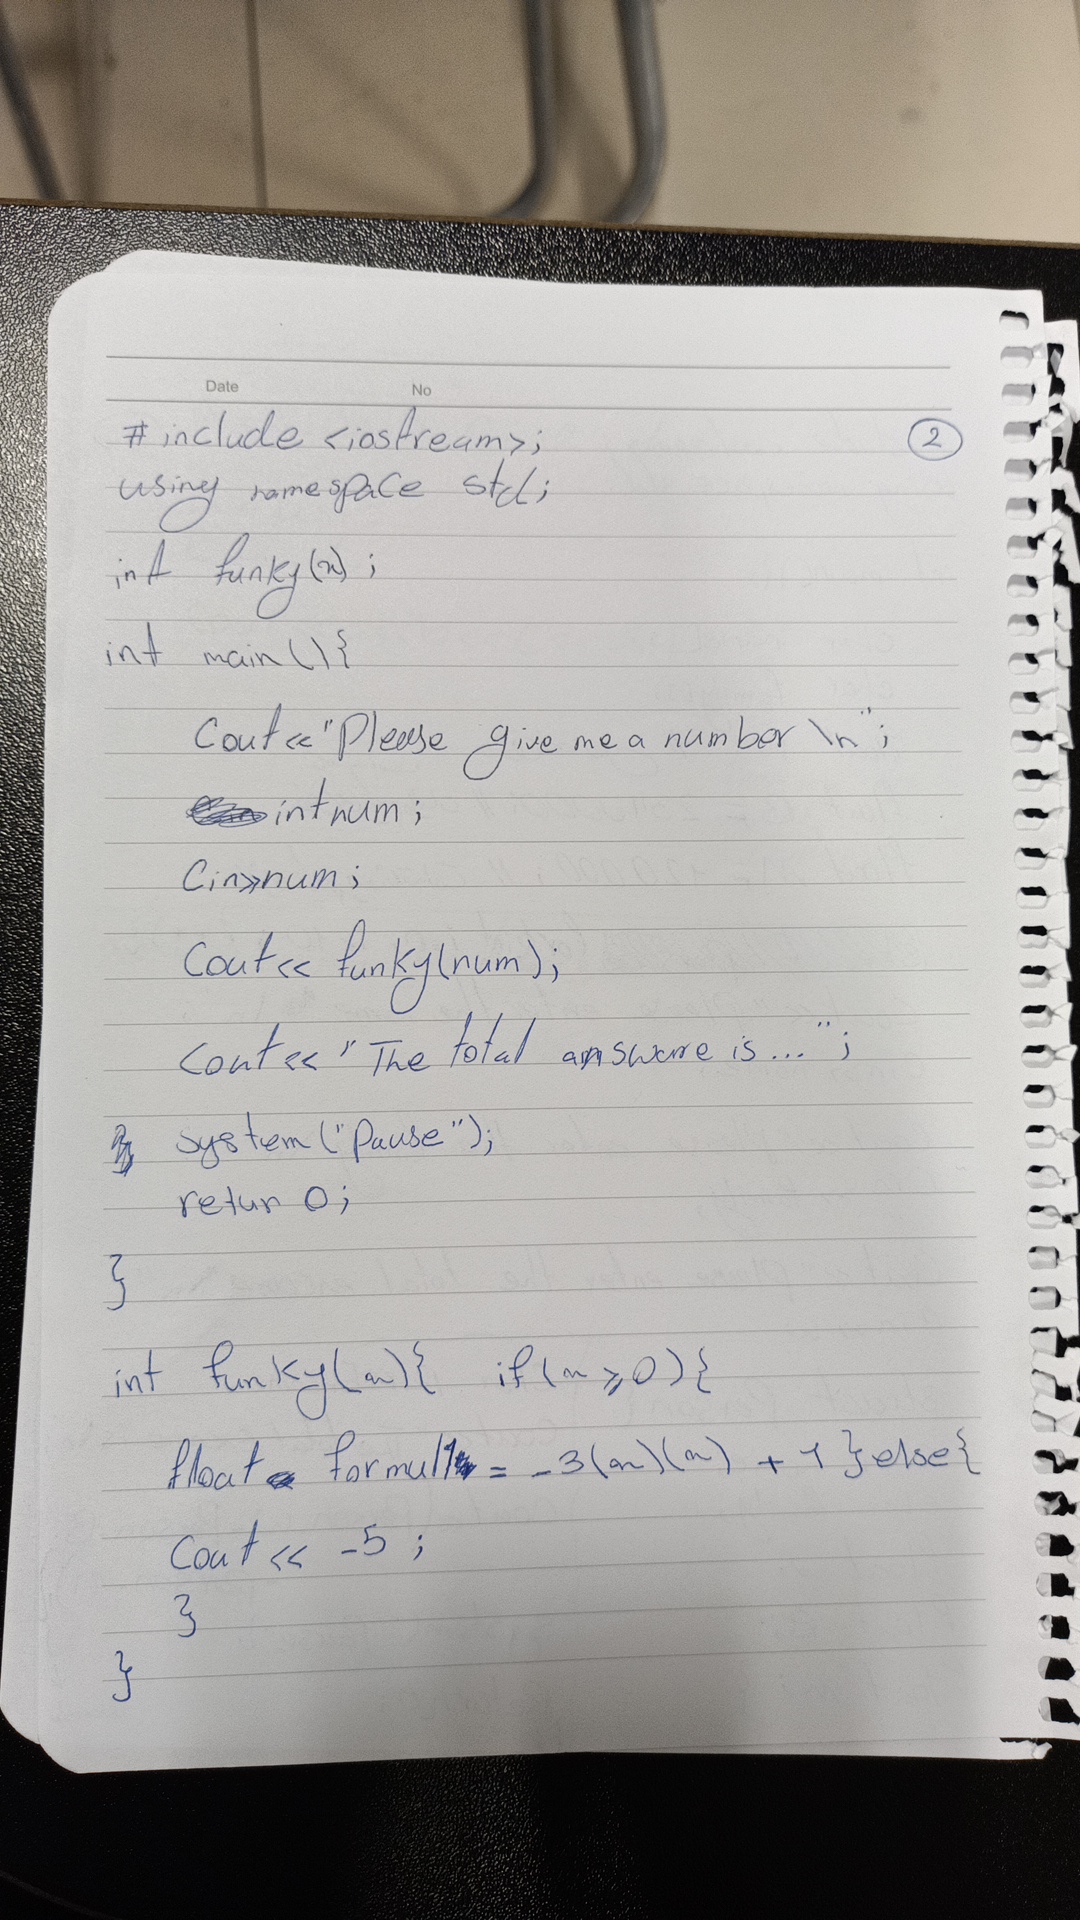 Date No
# include <iostream>; 2
using namespace std;
int funky(x);
int main(){
Cout<<"Please give me a number \n";
int num;
Cin>>num;
Cout<< funky(num);
Cout<< "The total answare is...";
system("Pause");
retur 0;
}
int funky(x){ if(x≥0){
float formull = -3(x)(x) + 1 }else{
Cout << -5;
}
}